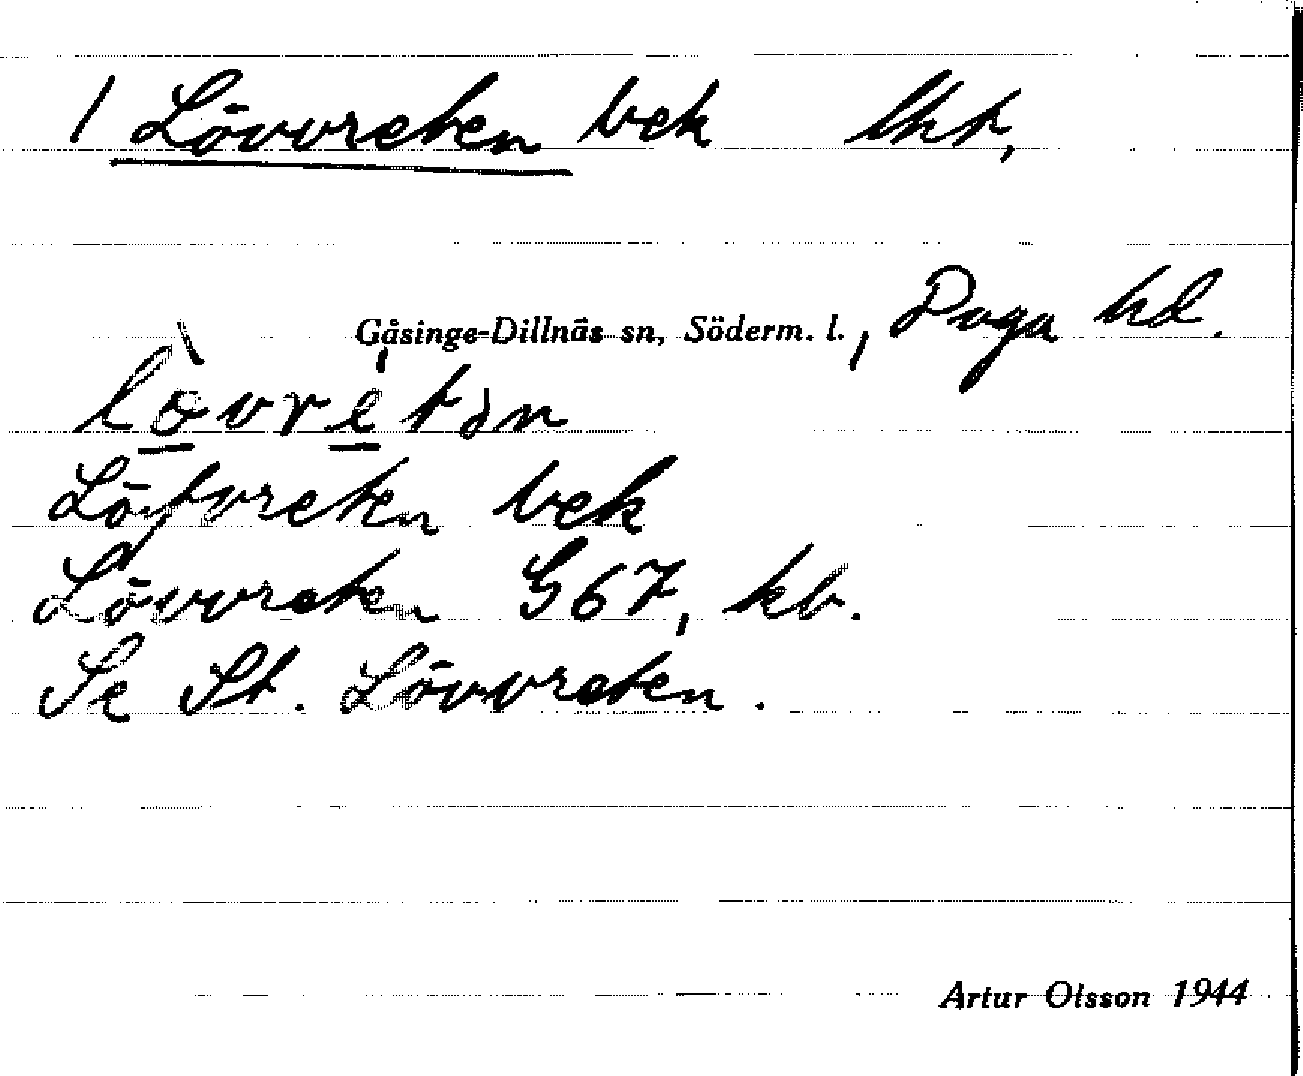 / Lövvreten bek lht,
Gåsinge-Dillnäs sn, Söderm. l., Daga hd.
lö̀vrétən
Löfvreten bek
Lövvreten G67, kb.
Se St. Lövvreten.
Artur Olsson 1944